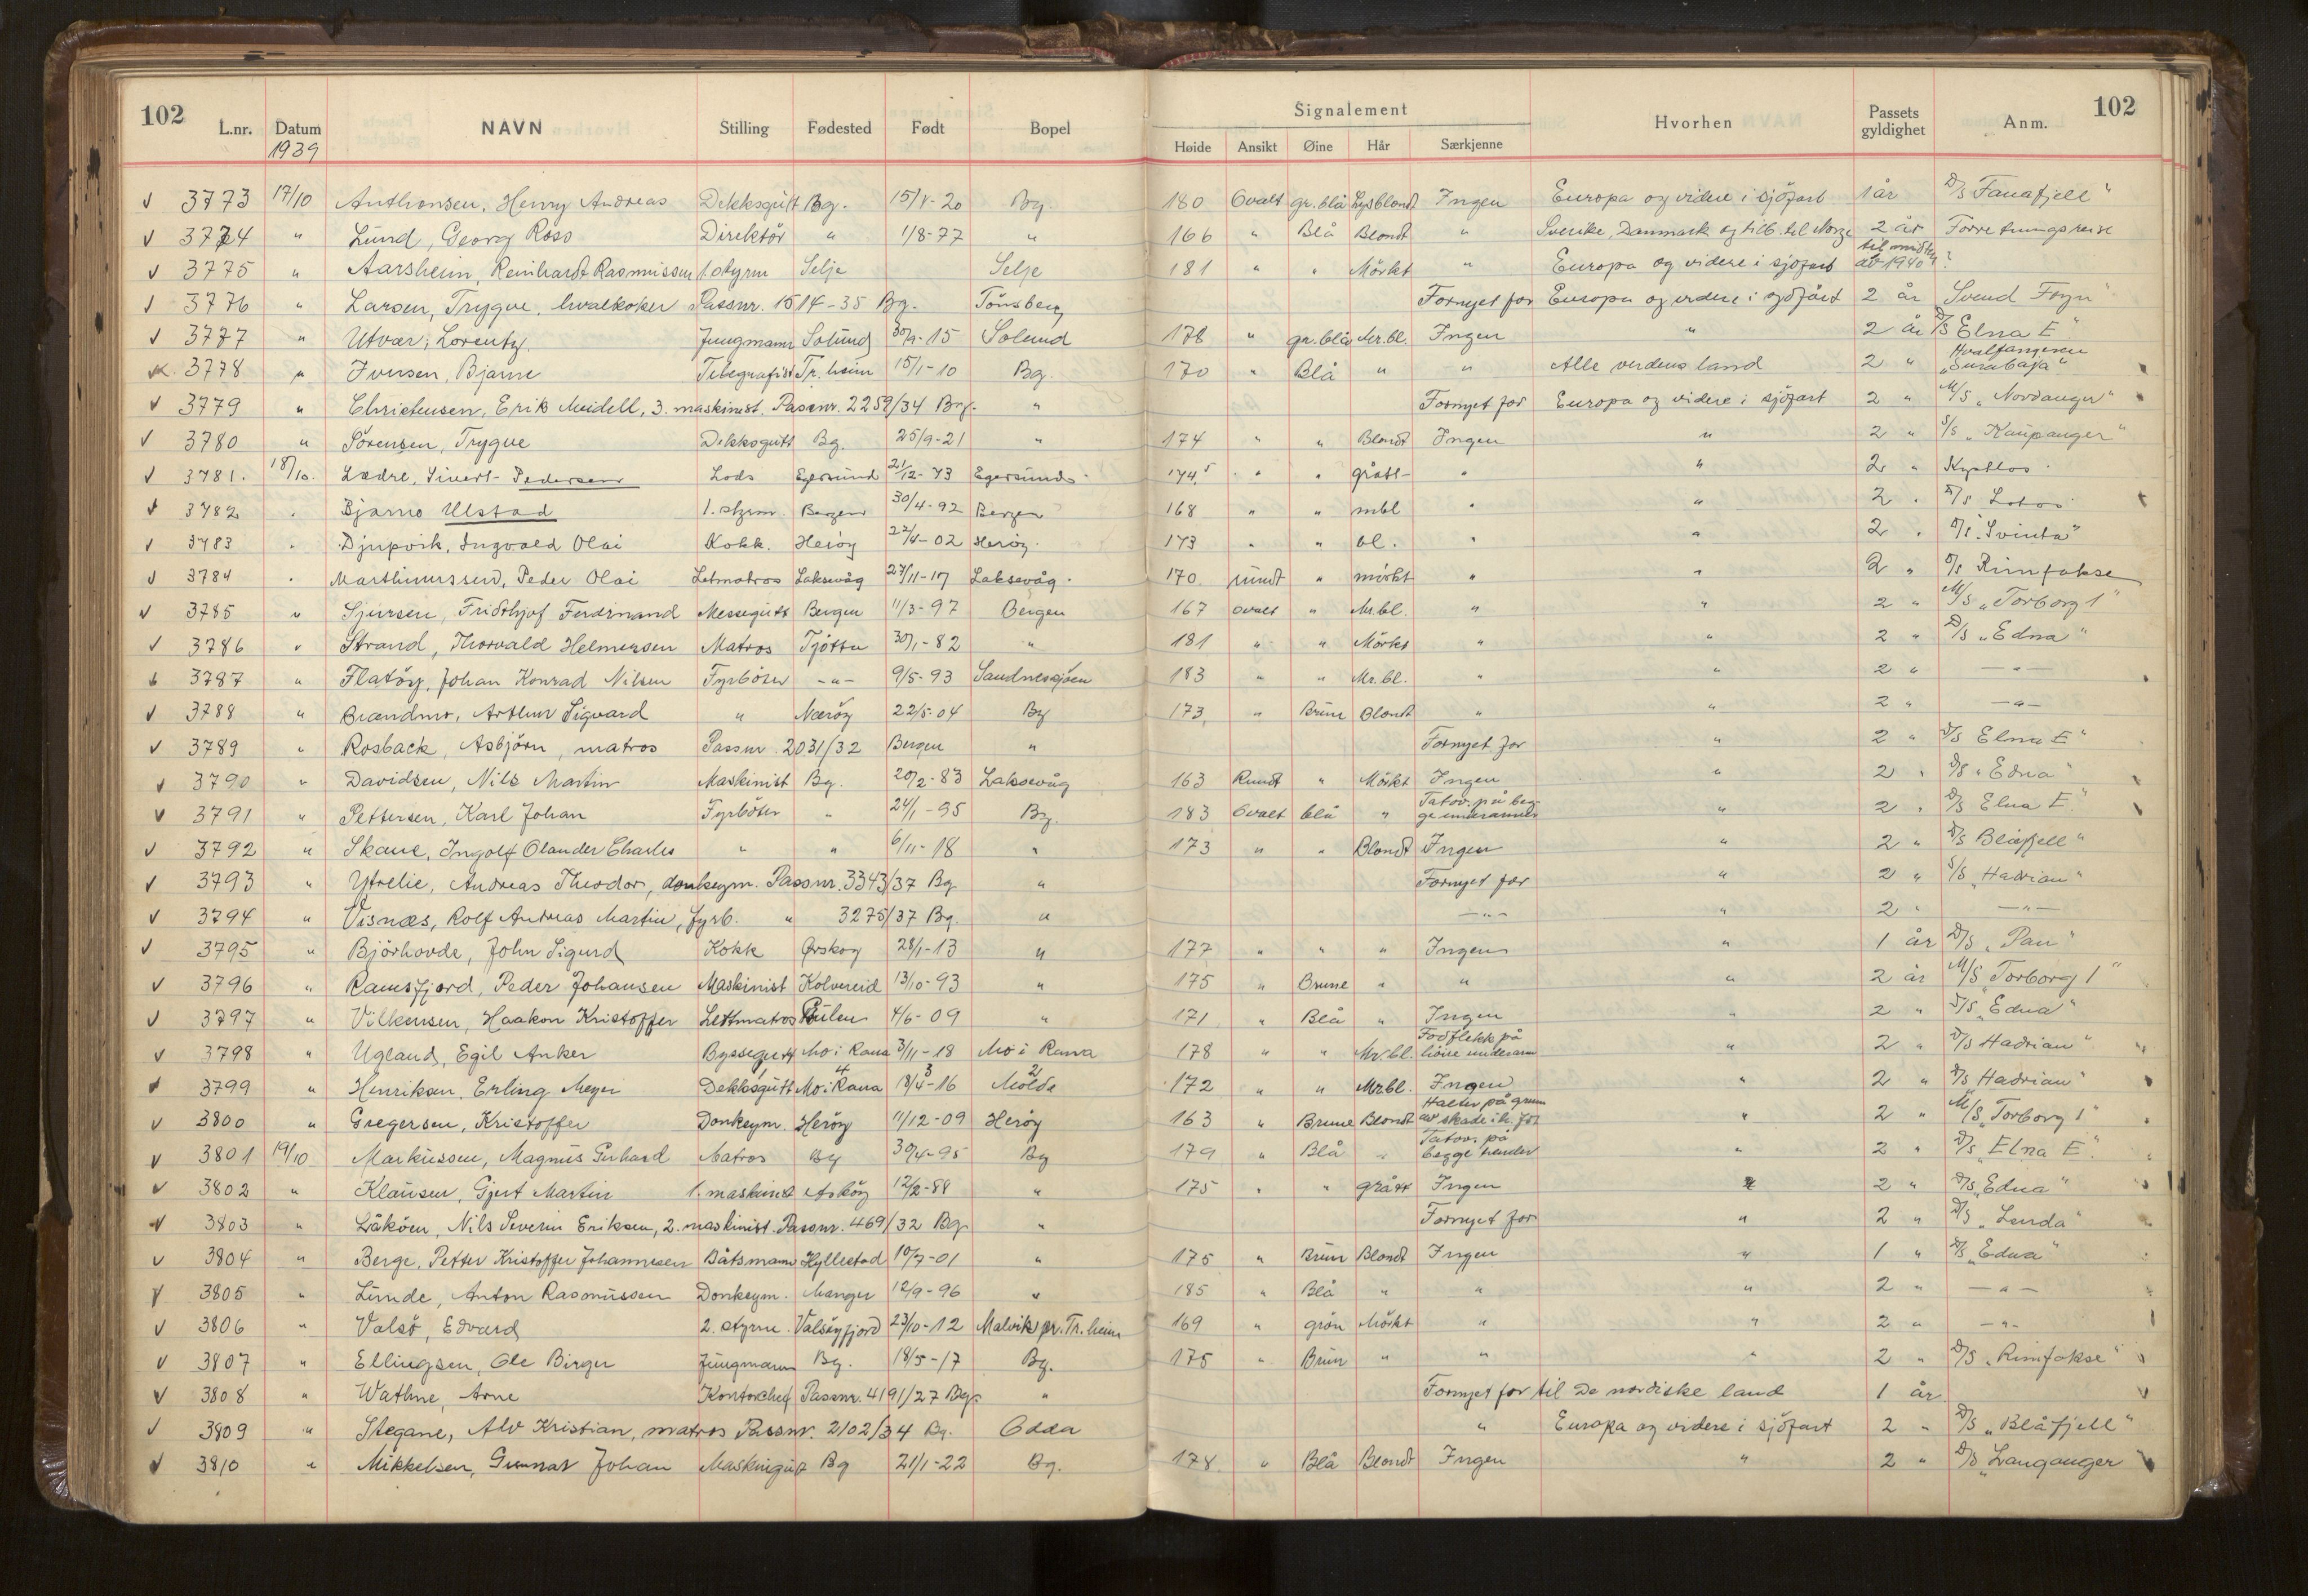 102 Signalement 102
L.nr. Datum NAVN Stilling Fødested Født Bopel Høide Ansikt Øine Hår Særkjenne Hvorhen Passets gyldighet Anm.
1939
3773 17/10 Anthonsen, Henry Andreas Dekksgutt Bg. 15/5-20 Bg. 180 Ovalt gr.blå Lysblondt Ingen Europa og videre i sjöfart 1 år D/S Fanafjell"
3774 " Lund, Georg Ross Direktör " 1/8-77 " 166 " Blå Blondt " Sverike, Danmark og tilb. til Norge 2 år Forretningsreise
3775 " Aarsheim, Reinhardt Rasmussen 1. styrm Selje Selje 181 " " Mörkt " Europa og videre i sjöfart til av 1940
3776 " Larsen, Trygve, hvalkoker Passnr. 1514-35 Bg. Tönsberg Fornyet for Europa og videre i sjöfart 2 år Svend Foyn"
3777 " Utvær, Lorentz. Jungmann Solund 30/9-15 Solund 178 " gr.blå Mr.bl. Ingen " 2 år D/S Elna E"
3778 " Iversen, Bjarne Telegrafist Tr.heim 15/1-10 Bg. 170 " Blå " " Alle verdens land 2 " Hvalfangeren "Surabaja"
3779 " Christensen, Erik Meidell, 3. maskinist. Passnr. 2259/34 Brg. " Fornyet for Europa og videre i sjöfart 2 " M/S „Nordanger"
3780 " Sörensen, Trygve Dekksgutt Bg. 25/9-21 " 174 " " Blondt Ingen " 2 " S/S „Kaupanger"
3781. 18/10. Lædre, Sivert Pedersen Lods Egersund 21/12-73 Egersund 174,5 " " grått " " 2 " Kystlos
3782 " Bjarne Ulstad 1. styrm. Bergen 30/4-92 Bergen 168 " " mbl " " 2 " D/S Lotos
3783 " Djupvik, Ingvald Olai Kokk. Heröy 22/4-02 Heröy. 173 " " bl. " " 2 " D/S „Svinta"
3784 " Marthinussen, Peder Olai Letmatros Laksevåg 27/11-17 Laksevåg. 170 rundt " mörkt " " 2 " D/S Rimfakse
3785 " Sjursen, Fridthjof Ferdinand Messegutt Bergen 11/3-97 Bergen 167 ovalt " Mr.bl. " " 2 " M/S „Torborg 1"
3786 " Strand, Thorvald Helmersen Matros Tjötta 30/1-82 " 181 " " Mörkt " " 2 " D/S „Edna"
3787 " Flatöy, Johan Konrad Nilsen Fyrböter -"- 9/5-93 Sandnessjöen 183 " " Mr.bl. " " 2 " -"-
3788 " Brændmo, Arthur Sigvard " Næröy 22/5-04 Bg 173 " Brune Blondt " " 2 " -"-
3789 " Rosback, Asbjörn, matros Passnr. 2031/32 Bergen " Fornyet for " 2 " D/S Elna E"
3790 " Davidsen, Nils Martin Maskinist Bg. 20/2-83 Laksevåg 163 Rundt " Mörkt Ingen " 2 " D/S „Edna"
3791 " Pettersen, Karl Johan Fyrböter " 24/1-95 Bg. 183 Ovalt blå " Tatov. på begge underarmer " 2 " D/S Elna E."
3792 " Skaue, Ingolf Olander Charles " " 6/11-18 " 173 " " Blondt Ingen " 2 " D/S Blåfjell"
3793 " Ytrelie, Andreas Theodor, donkeym. Passnr. 3343/37 Bg " Fornyet for " 2 " S/S „Hadrian"
3794 " Visnæs, Rolf Andreas Martin, fyrb. " 3275/37 Bg. " -"- " 2 " -"-
3795 " Björhovde, John Sigurd Kokk Ørskog 28/1-13 " 177 " " " Ingen " 1 år D/S „Pan"
3796 " Ramsfjord, Peder Johansen Maskinist Kolvereid 13/10-93 " 175 " Brune " " " 2 år M/S „Torborg 1"
3797 " Vilkensen, Haakon Kristoffer Lettmatros Gulen 4/6-09 " 171 " Blå " Ingen " 2 " D/S „Edna"
3798 " Ugland, Egil Anker Byssegutt Mo i Rana 3/11-18 Mo i Rana 178 " " Mr.bl. Fodflekk på höire underarm " 2 " D/S Hadrian"
3799 " Henriksen, Erling Meyer Dekksgutt Mo i Rana 18/4-16 Molde 172 " " Mr.bl. Ingen " 2 " D/S Hadrian"
3800 " Gregersen, Kristoffer Donkeym. Heröy 11/12-09 Heröy 163 " Brune Blondt Halter på grunn av skade i h. fot " 2 " M/S „Torborg 1"
3801 19/10 Markussen, Magnus Gerhard Matros Bg 30/4-95 Bg 179 " Blå " Tatov. på begge hender " 2 " D/S „Elna E."
3802 " Klausen, Gjert Martin 1. maskinist Asköy 12/2-88 " 175 " " grått Ingen " 2 " D/S „Edna"
3803 " Låköen, Nils Severin Eriksen, 2. maskinist. Passnr. 469/32 Bg. " Fornyet for " 2 " D/S „Lenda"
3804 " Berge, Petter Kristoffer Johannesen Båtsmann Hyllestad 10/7-01 " 175 " Brun Blondt Ingen " 1 " D/S „Edna"
3805 " Lunde, Anton Rasmussen Donkeym. Manger 12/9-96 " 185 " Blå " " " 2 " -"-
3806 " Valsö, Edvard 2. styrm. Valsöyfjord 23/10-12 Malvik pr. Tr.heim 169 " grön Mörkt " " 2 " -"-
3807 " Ellingsen, Ole Birger Jungmann Bg. 18/5-17 Bg. 175 " Brun " " " 2 " D/S „Rimfakse"
3808 " Wathne, Arne Kontorchef Passnr. 4191/27 Bg. " Fornyet for til De nordiske land 1 år
3809 " Stegane, Alv Kristian, matros Passnr. 2102/34 Bg. Odda " Europa og videre i sjöfart 2 " D/S „Blåfjell"
3810 " Mikkelsen, Gunnar Johan Maskingutt Bg 21/1-22 Bg. 178 " Blå Blondt Ingen " 2 " D/S „Langanger